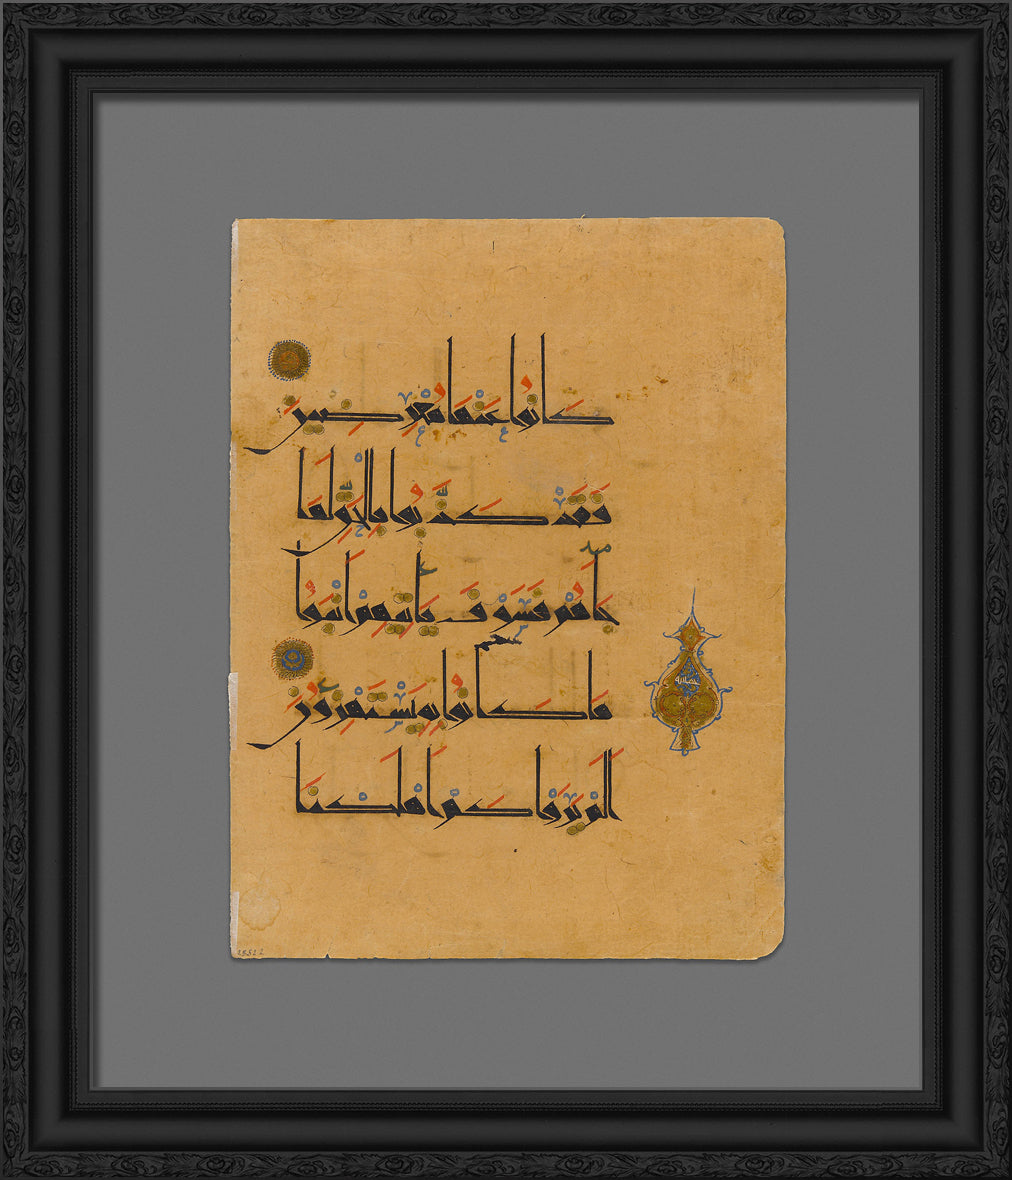 كَانُوا عَنْهَا مُعْرِضِينَ
فَقَدْ كَذَّبُوا بِالْحَقِّ لَمَّا
جَاءَهُمْ فَسَوْفَ يَأْتِيهِمْ أَنْبَٰؤُا
مَا كَانُوا بِهِ يَسْتَهْزِؤُنَ
أَلَمْ يَرَوْا كَمْ أَهْلَكْنَا